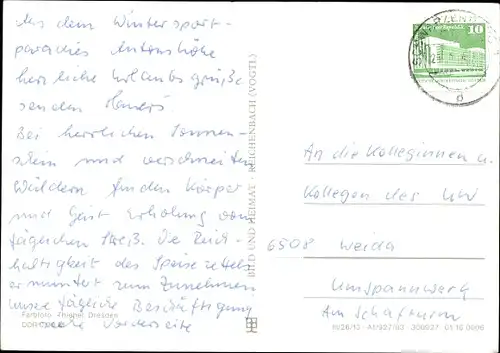 Aus dem Wintersport-
paradies Antonshöhe
herzliche Urlaubsgrüße
senden
Bei herrlichem Sonnen-
schein und verschneiten
Wäldern finden Körper
und Geist Erholung vom
täglichen Streß. Die Reich-
haltigkeit des Speisezettels
ermuntert zum Zunehmen
unsere tägliche Beschäftigung
siehe Vorderseite
Farbfoto: Thienel, Dresden
BILD UND HEIMAT · REICHENBACH (VOGTL)
10
An die Kolleginnen u.
Kollegen des UW
6508 Weida
Umspannwerk
Am Schafturm